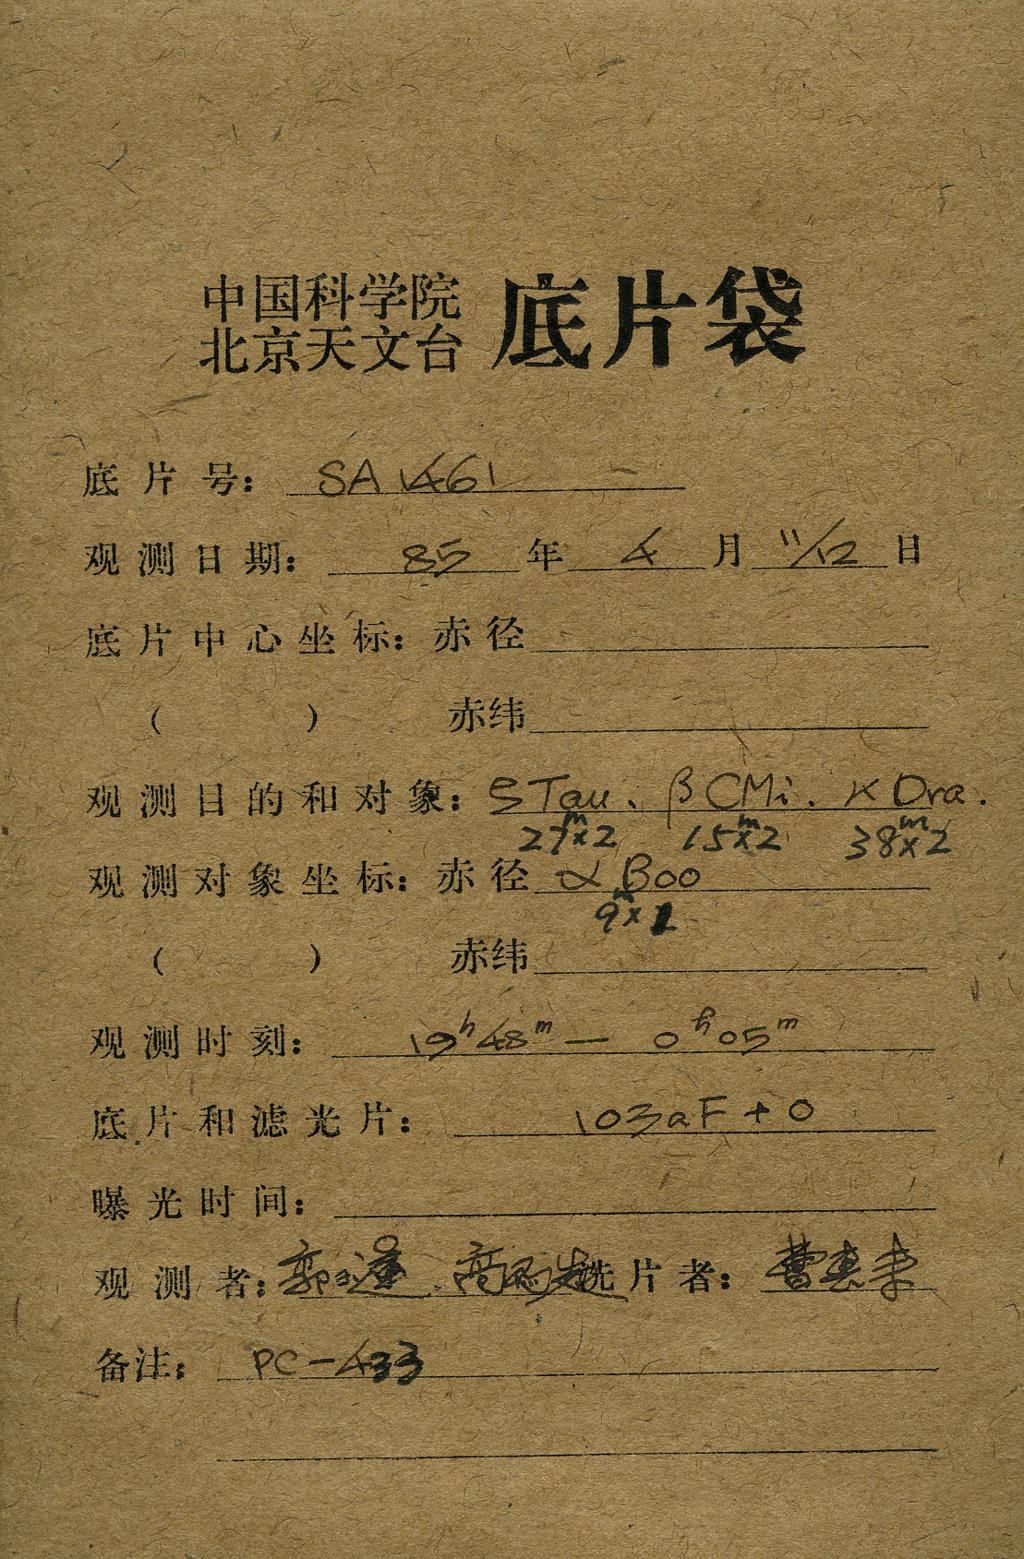 中国科学院
北京天文台 底片袋
底片号： SA 1461
观测日期： 85 年 4 月 11/12 日
底片中心坐标：赤径
（ ） 赤纬
观测目的和对象： ξ Tau、β CMi、κ Dra.
27ᵐ×2 15ᵐ×2 38ᵐ×2
观测对象坐标：赤径 α Boo
9×2
（ ） 赤纬
观测时刻： 19ʰ48ᵐ — 0ʰ05ᵐ
底片和滤光片： 103aF + 0
曝光时间：
观测者： 郭 洗片者： 曹
备注： PC-433